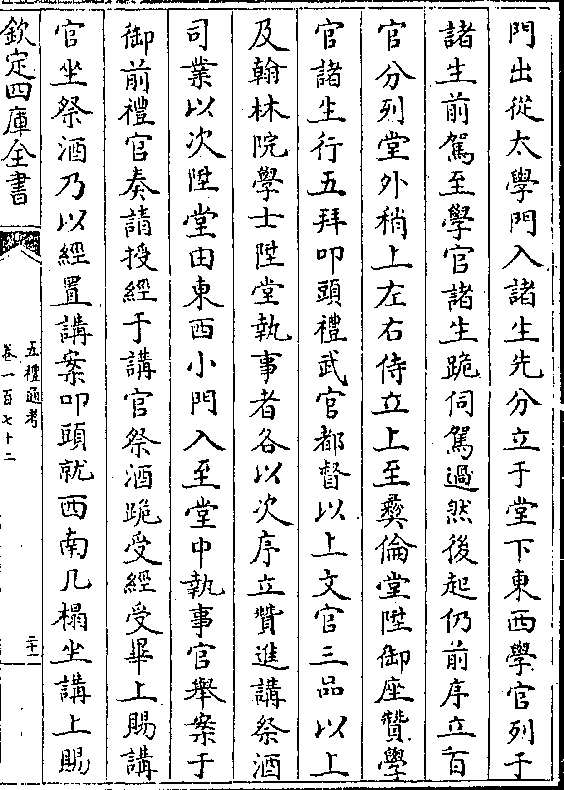 門出從太學門入諸生先分立于堂下東西學官列于
諸生前駕至學官諸生跪伺駕過然後起仍前序立百
官分列堂外稍上左右侍立上至彝倫堂陞御座贊學
官諸生行五拜叩頭禮武官都督以上文官三品以上
及翰林院學士陞堂執事者各以次序立贊進講祭酒
司業以次陞堂由東西小門入至堂中執事官舉案于
御前禮官奏請授經于講官祭酒跪受經受畢上賜講
官坐祭酒乃以經置講案叩頭就西南几榻坐講上賜
欽定四庫全書
五禮通考
卷一百七十二
二十一